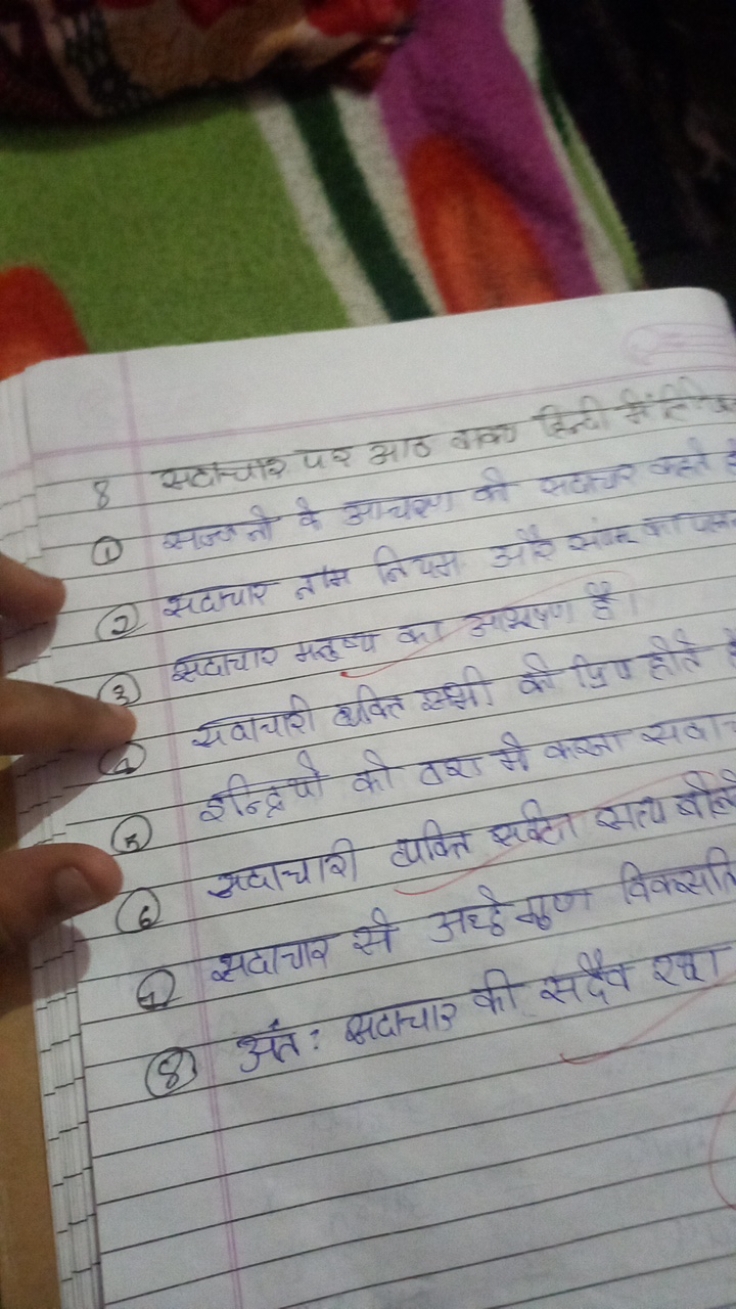 8 सदाचार पर आठ वाक्य हिन्दी में
① सज्जनो के आचरण को सदाचार कहते
② सदाचार नाम नियम और संयम का
③ सदाचार मनुष्य का आभूषण है।
④ सदाचारी व्यक्ति सभी को प्रिय होते
⑤ इन्द्रियो को वश मे करना
⑥ सदाचारी व्यक्ति सर्वदा सत्य
⑦ सदाचार से अच्छे गुण
⑧ अंत: सदाचार की सदैव रक्षा